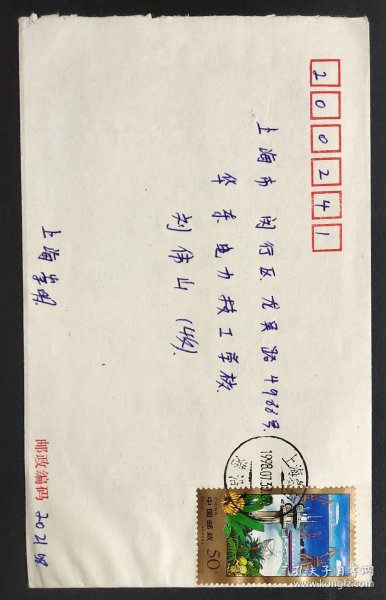 200241
上海市闵行区龙吴路4988号
华东电力技工学校
刘伟山(收)
上海崇明
邮政编码 202158
上海
1998.07.
CHINA
中国邮政
50
孔夫子旧书网